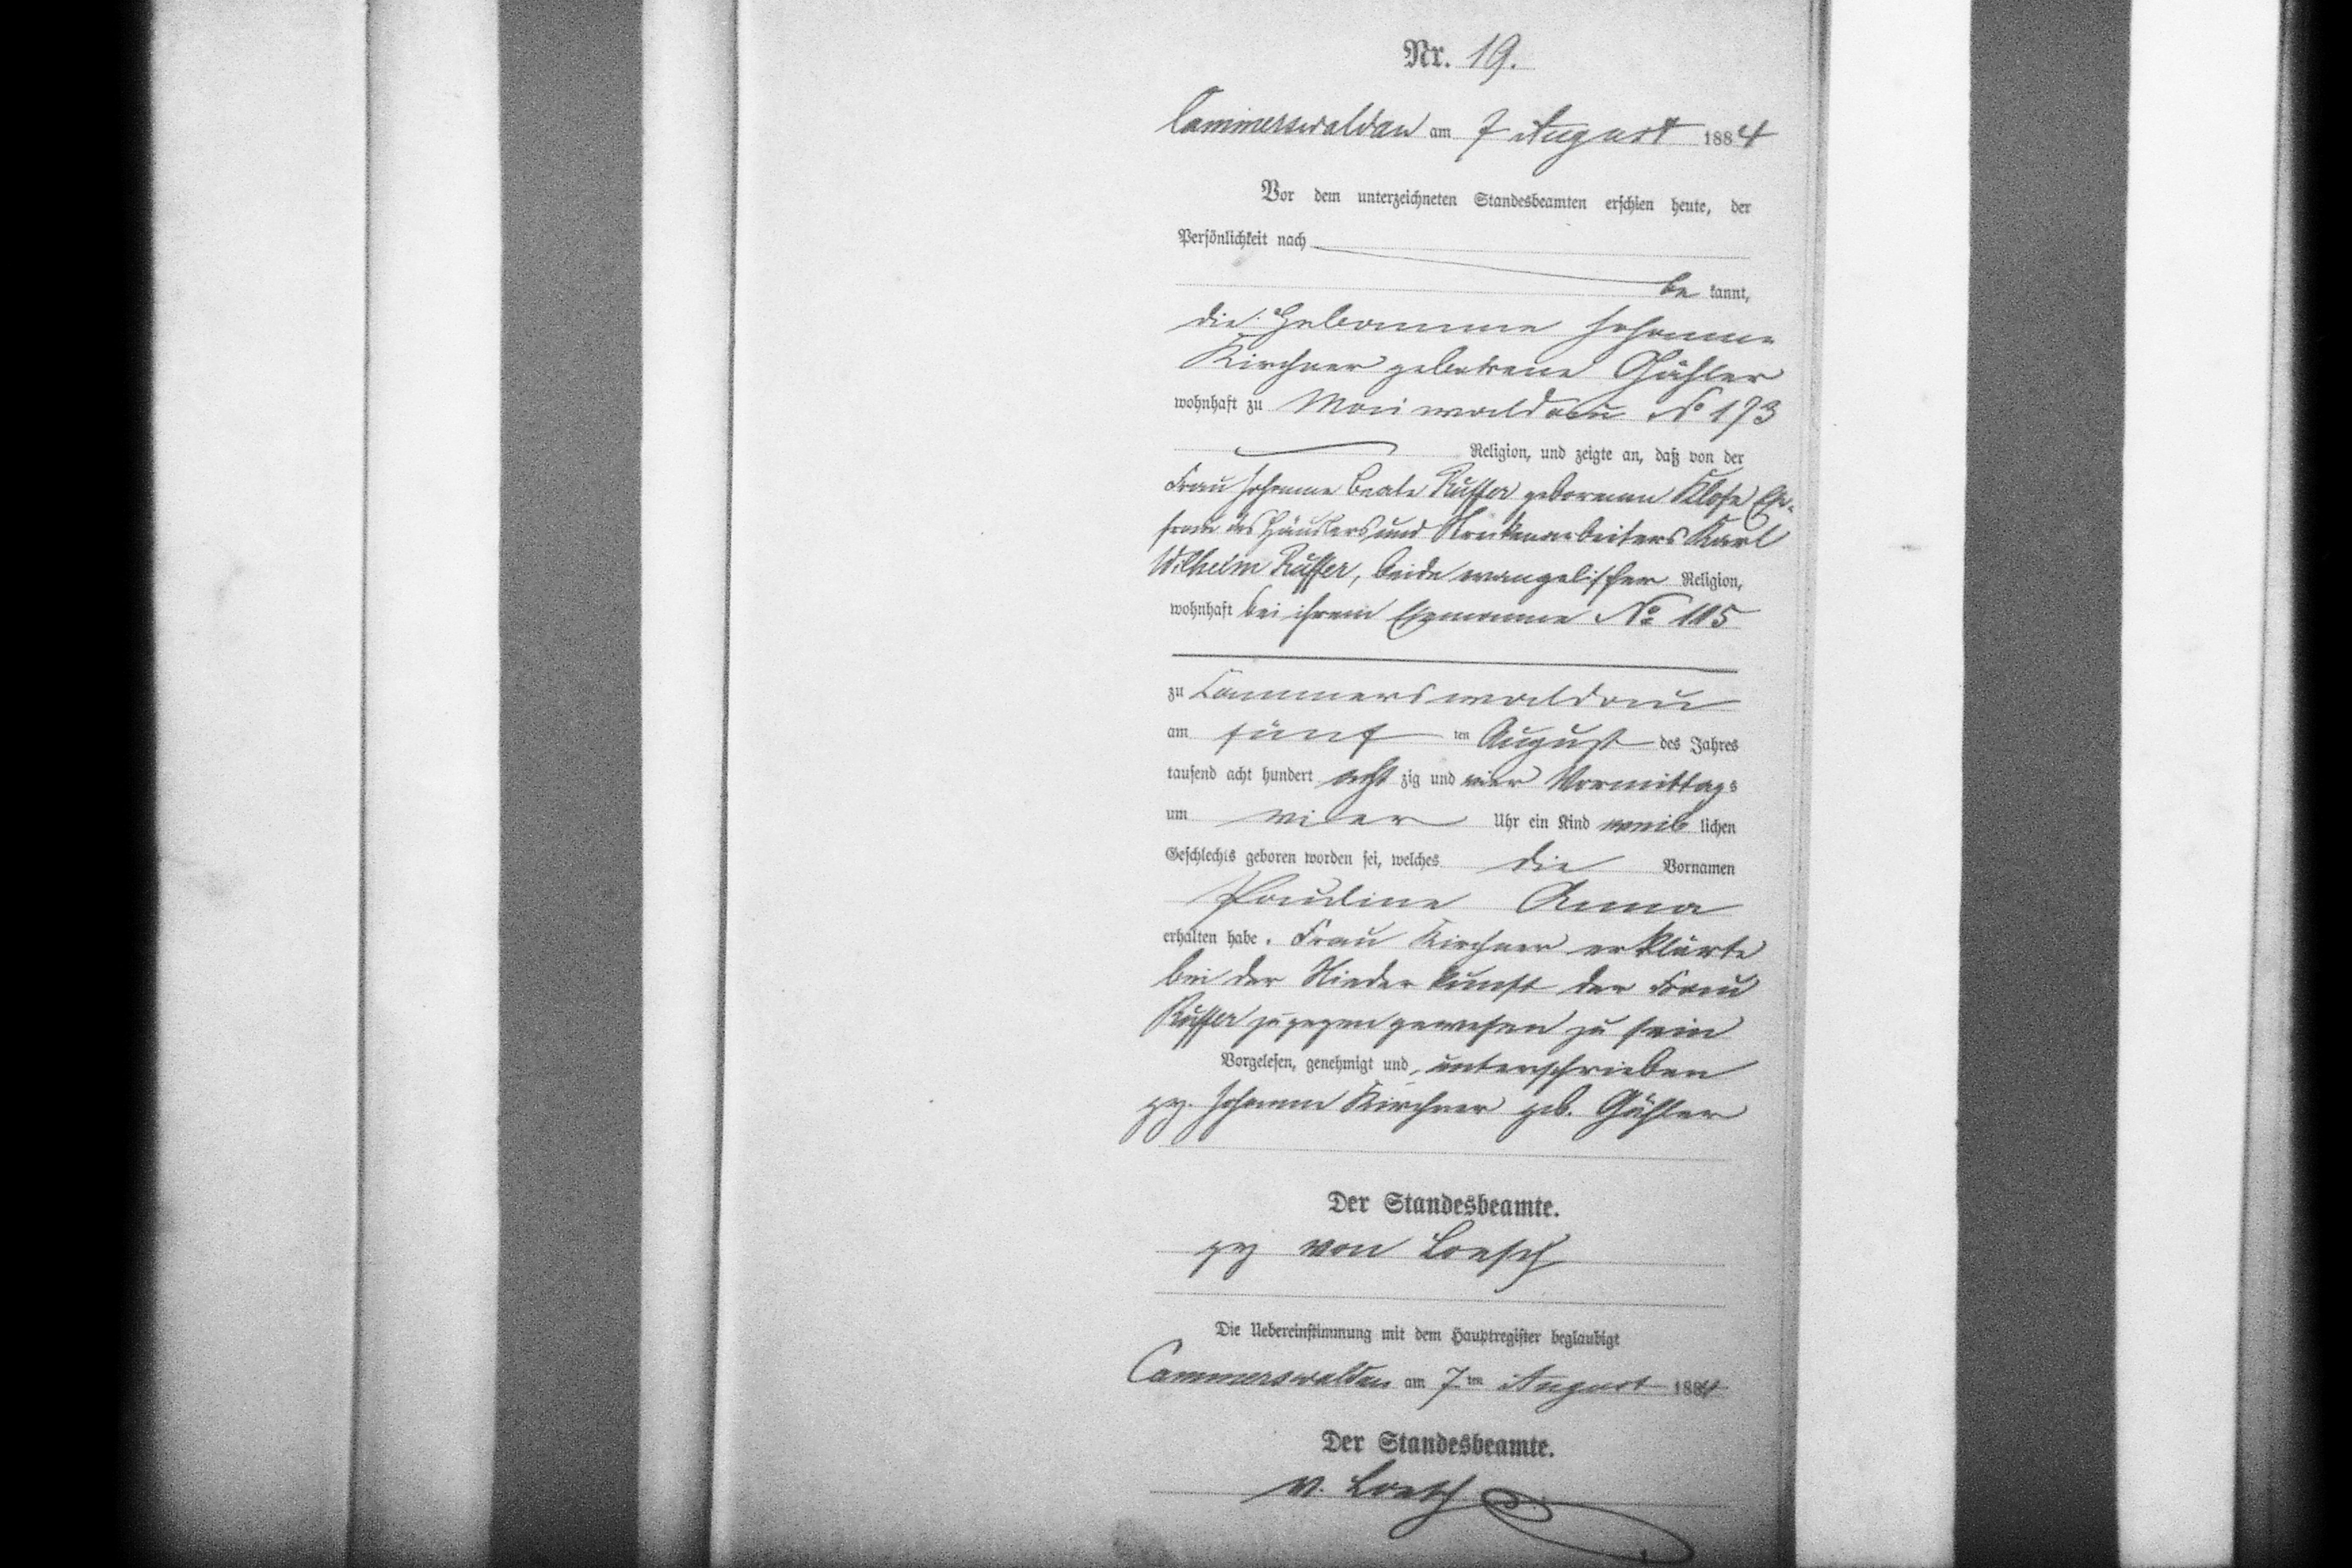 Nr. 19.
Cammerswaldau am 7 August 1884
Vor dem unterzeichneten Standesbeamten erschien heute, der
Persönlichkeit nach
be kannt,
die Hebamme Johanne
Kirchner geborene Gähler
wohnhaft zu Maiwaldau No 173
Religion, und zeigte an, daß von der
Frau Johanne Beate Ruffer geborenen Klose Ehe-
frau des Häuslers und Streckenarbeiters Karl
Wilhelm Ruffer, beide evangelischer Religion,
wohnhaft bei ihrem Ehemanne No 105
zu Cammerswaldau
am fünf ten August des Jahres
tausend acht hundert acht zig und vier Vormittags
um vier Uhr ein Kind weib lichen
Geschlechts geboren worden sei, welches die Vornamen
Pauline Anna
erhalten habe. Frau Kirchner erklärte
bei der Niederkunft der Frau
Ruffer zugegen gewesen zu sein
Vorgelesen, genehmigt und unterschrieben
gz. Johanne Kirchner geb. Gähler
Der Standesbeamte.
gz von Loesch
Die Uebereinstimmung mit dem Hauptregister beglaubigt
Cammerswaldau am 7 ten August 1884
Der Standesbeamte.
v. Loesch